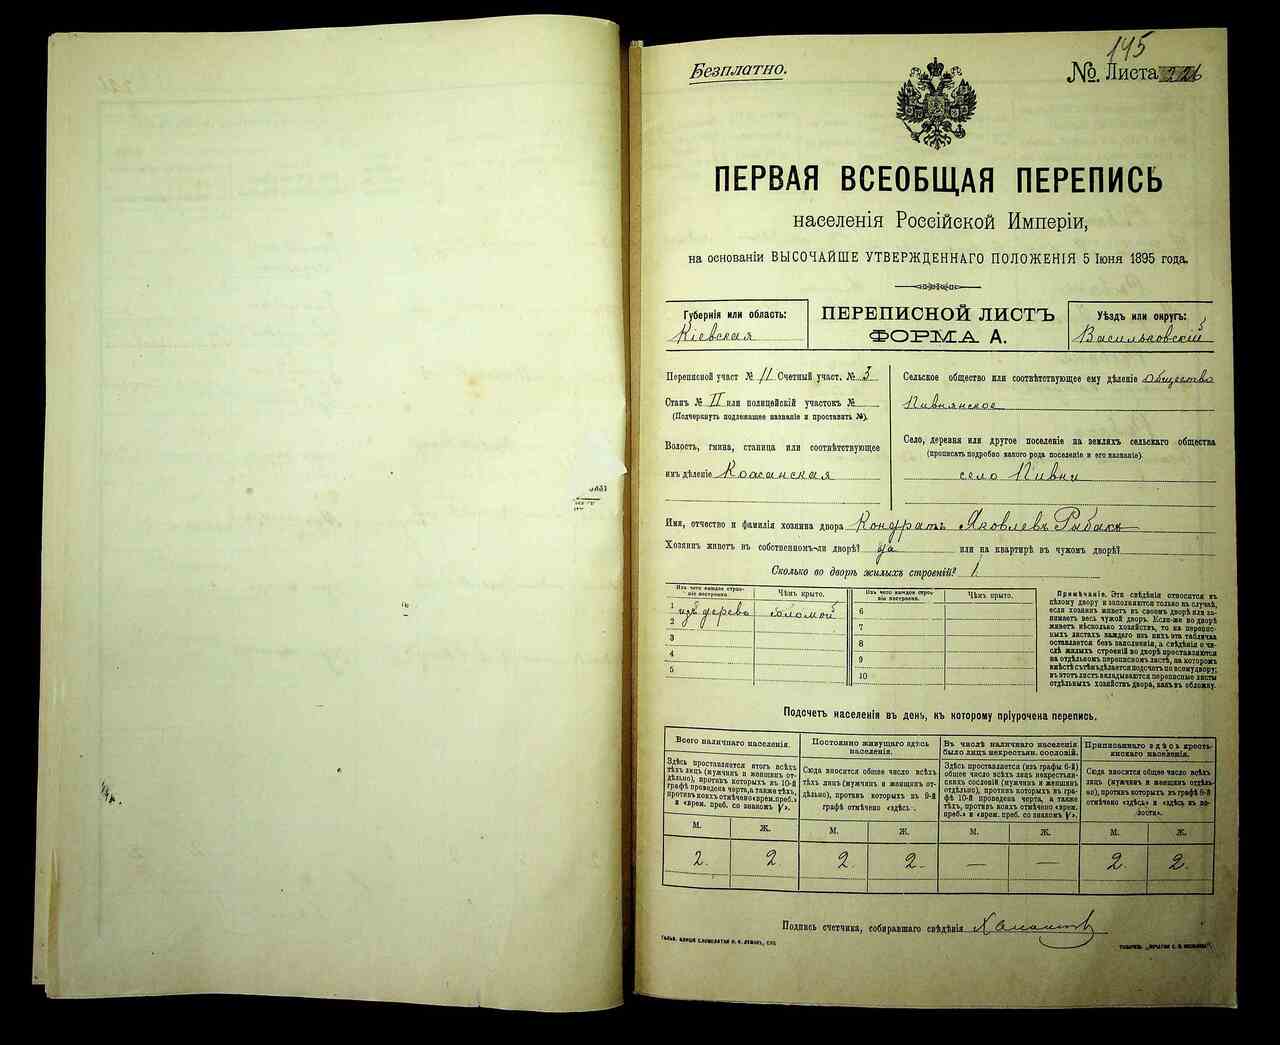 Безплатно.
145
№. Листа 226
ПЕРВАЯ ВСЕОБЩАЯ ПЕРЕПИСЬ
населенія Россійской Имперіи,
на основаніи ВЫСОЧАЙШЕ УТВЕРЖДЕННАГО ПОЛОЖЕНІЯ 5 Іюня 1895 года.
Губернія или область:
Кіевская
ПЕРЕПИСНОЙ ЛИСТЪ
ФОРМА А.
Уѣздъ или округъ:
Васильковскій
Переписной участ. № 11 Счетный участ. № 3
Станъ № II или полицейскій участокъ №
(Подчеркнуть подлежащее названіе и проставить №).
Волость, гмина, станица или соотвѣтствующее
имъ дѣленіе Кожанская
Сельское общество или соотвѣтствующее ему дѣленіе общество
Пивнянское
Село, деревня или другое поселеніе на земляхъ сельскаго общества
(прописать подробно какого рода поселеніе и его названіе).
село Пивни
Имя, отчество и фамилія хозяина двора Кондратъ Яковлевъ Рыбакъ
Хозяинъ живетъ въ собственномъ-ли дворѣ? да или на квартирѣ въ чужомъ дворѣ?
Сколько во дворѣ жилыхъ строеній? 1.
Изъ чего каждое строеніе построено.
Чѣмъ крыто.
Изъ чего каждое строеніе построено.
Чѣмъ крыто.
1 изъ дерева соломой
2
3
4
5
6
7
8
9
10
Примѣчаніе. Эти свѣдѣнія относятся къ
цѣлому двору и заполняются только на случай,
если хозяинъ живетъ въ своемъ дворѣ или занимаетъ
весь чужой дворъ. Если-же во дворѣ
живетъ нѣсколько хозяйствъ, то на переписныхъ
листахъ каждаго изъ нихъ эта табличка
оставляется безъ заполненія, а свѣдѣнія о числѣ
жилыхъ строеній во дворѣ проставляются
на отдѣльномъ переписномъ листѣ, на которомъ
вмѣстѣ съ тѣмъ дѣлается подсчетъ по всему двору;
въ этотъ листъ вкладываются переписные листы
отдѣльныхъ хозяйствъ двора, какъ въ обложку.
Подсчетъ населенія въ день, къ которому пріурочена перепись.
Всего наличнаго населенія.
Здѣсь проставляется итогъ всѣхъ
тѣхъ лицъ (мужчинъ и женщинъ отдѣльно),
противъ которыхъ въ 10-й
графѣ проведена черта, а также тѣхъ,
противъ коихъ отмѣчено «врем. преб.»
и «врем. преб. со знакомъ V».
Постоянно живущаго здѣсь
населенія.
Сюда вносится общее число всѣхъ
тѣхъ лицъ (мужчинъ и женщинъ отдѣльно),
противъ которыхъ въ 9-й
графѣ отмѣчено «здѣсь».
Въ числѣ наличнаго населенія
было лицъ некрестьян. сословій.
Здѣсь проставляется (изъ графы 6-й)
общее число всѣхъ лицъ некрестьянскихъ
сословій (мужчинъ и женщинъ
отдѣльно), противъ которыхъ въ графѣ
10-й проведена черта, а также
тѣхъ, противъ коихъ отмѣчено «врем.
преб.» и «врем. преб. со знакомъ V».
Приписаннаго здѣсь крестьянскаго
населенія.
Сюда вносится общее число всѣхъ
лицъ (мужчинъ и женщинъ отдѣльно),
противъ которыхъ въ графѣ 8-й
отмѣчено «здѣсь» и «здѣсь въ волости».
М. Ж. М. Ж. М. Ж. М. Ж.
2. 2 2. 2. — — 2 2.
Подпись счетчика, собиравшаго свѣдѣнія